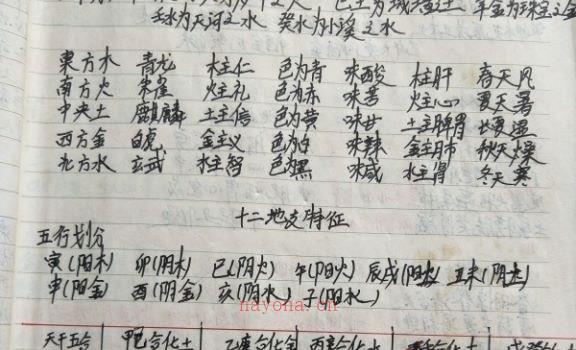 壬水为天河之水 癸水为小溪之水
東方木 青龙 木主仁 色为青 味酸 木主肝 春天风
南方火 朱雀 火主礼 色为赤 味苦 火主心 夏天暑
中央土 麒麟 土主信 色为黄 味甘 土主脾胃 长夏湿
西方金 白虎 金主义 色为白 味辣 金主肺 秋天燥
北方水 玄武 水主智 色为黑 味咸 水主肾 冬天寒
十二地支特征
五行划分
寅(阳木) 卯(阴木) 巳(阴火) 午(阳火) 辰戌(阳土) 丑未(阴土)
申(阳金) 酉(阴金) 亥(阴水) 子(阳水)
nayona.cn
天干五合 甲己合化土 乙庚合化金 丙辛合化水